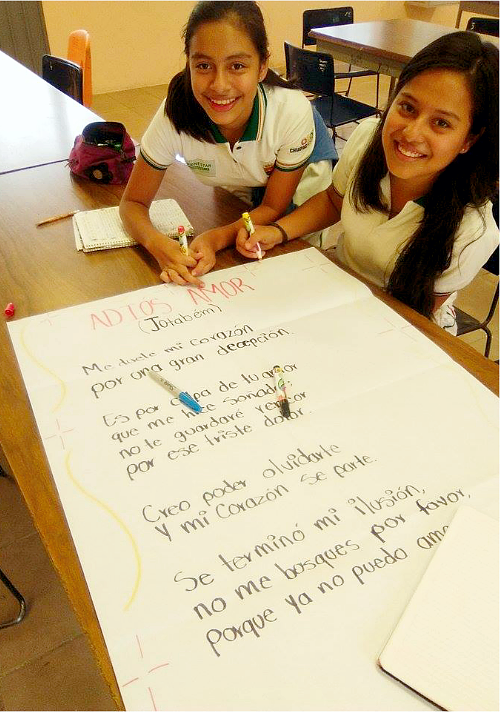 ADIOS AMOR
(Jotabém)
Me duele mi Corazón
por una gran decepción
Es por culpa de tu amor
que me hice
no le guardaré rencor
por ese triste dolor.
Creo poder olvidarle
y mi Corazón se parte.
Se terminó mi ilusión,
no me bosques por favor,
porque ya no puedo